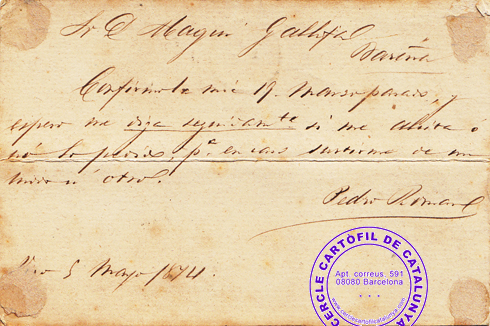 Sr D Magin Gallifa
Confirmole mi 19. Marzo pasado, y
espero me diga seguidamte si me envia ó
nó lo pedido, pa en caso surtirme de un
modo ú otro.
Pedro Roman
5 Mayo 1874.
CERCLE CARTÒFIL DE CATALUNYA
Apt. correus. 591
08080 Barcelona
www.cerclecartofilcatalunya.com